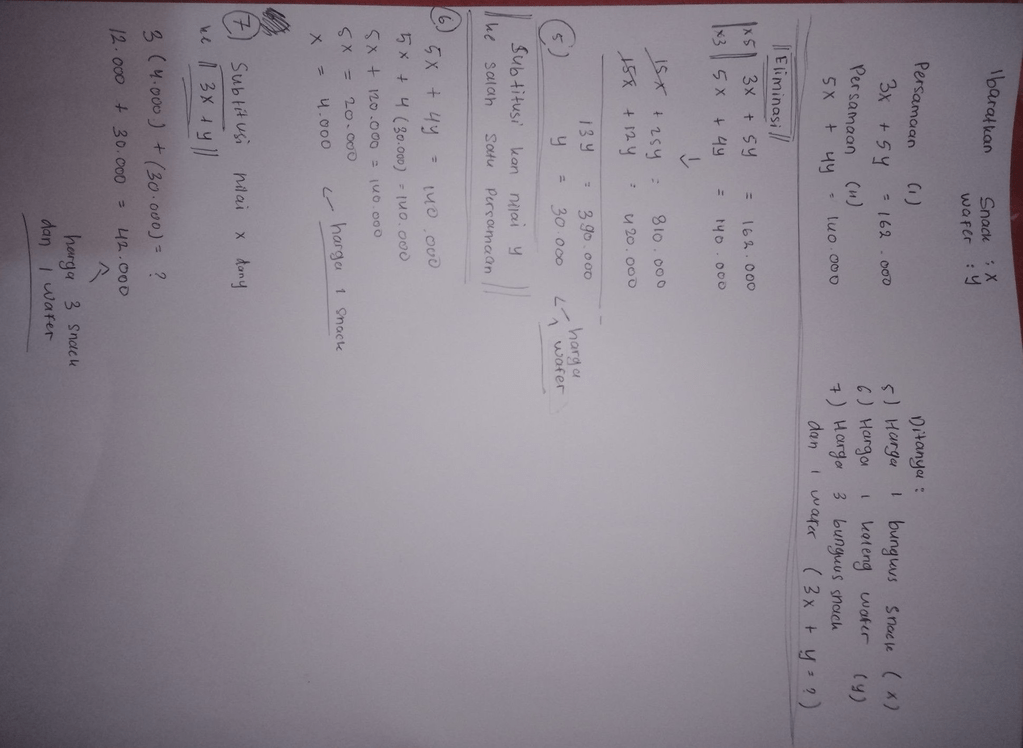 Ibaratkan Snack : x
wafer : y
Persamaan (i)
3x + 5y = 162.000
Persamaan (ii)
5x + 4y = 140.000
Ditanya :
5) Harga 1 bungkus snack (x)
6) Harga 1 kaleng wafer (y)
7) Harga 3 bungkus snack
dan 1 wafer (3x + y = ?)
|| Eliminasi ||
|x5| 3x + 5y = 162.000
|x3| 5x + 4y = 140.000
↓
15x + 25y = 810.000
15x + 12y = 420.000
13y = 390.000
5) y = 30.000 <- harga
1 wafer
|| Subtitusi kan nilai y
ke salah satu persamaan ||
6) 5x + 4y = 140.000
5x + 4 (30.000) = 140.000
5x + 120.000 = 140.000
5x = 20.000
x = 4.000 <- harga 1 snack
7) Subtitusi nilai x dany
ke || 3x + y ||
3 (4.000) + (30.000) = ?
12.000 + 30.000 = 42.000
^
harga 3 snack
dan 1 wafer